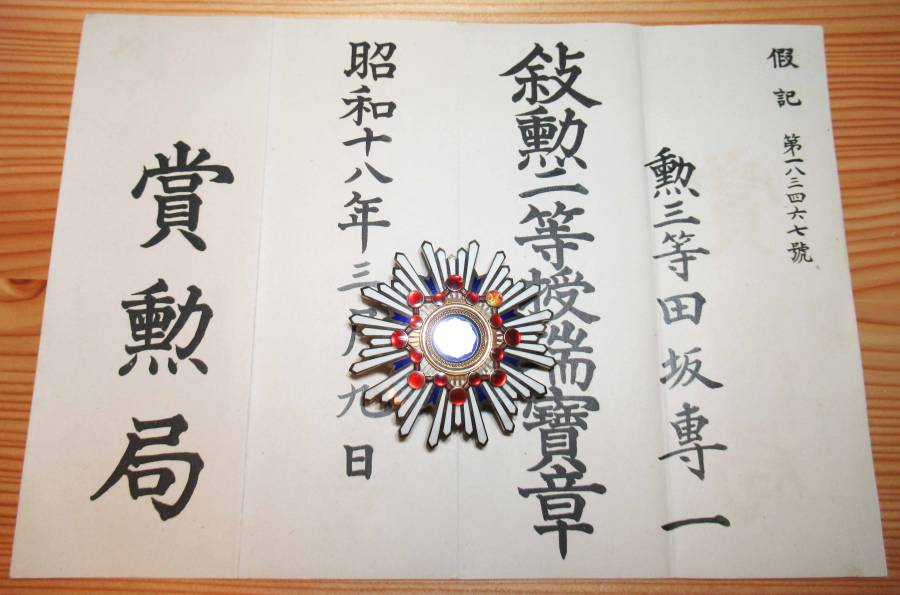 假記 第一八三四六七號
勲三等田坂專一
敍勲二等授瑞寶章
昭和十八年三月九日
賞勲局